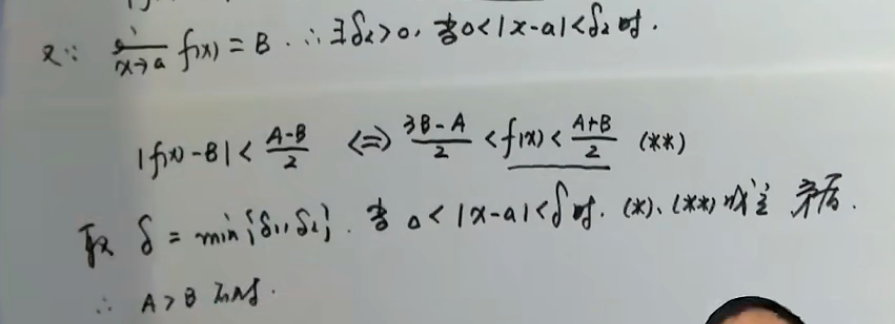 又∵ lim x→a f(x) = B. ∴ ∃δ₂>0, 当0<|x-a|<δ₂时.
|f(x)-B| < (A-B)/2 <=> (3B-A)/2 < f(x) < (A+B)/2 (**)
取 δ = min{δ₁,δ₂}. 当 0<|x-a|<δ时. (*)、(**)成立 矛盾.
∴ A>B 不对.